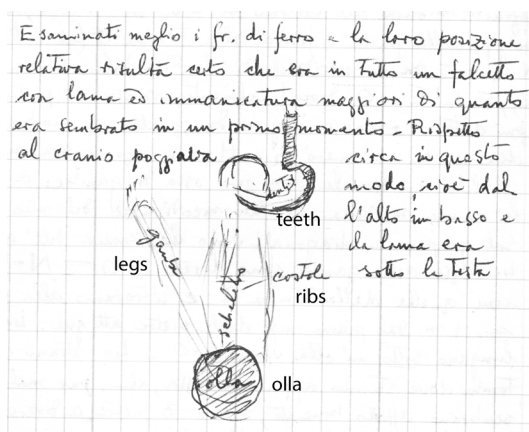 Esaminati meglio i fr. di ferro e la loro posizione
relativa risulta certo che era in tutto un falcetto
con lama ed immanicatura maggiori di quanto
era sembrato in un primo momento - Rispetto
al cranio poggiava circa in questo
modo, cioè dal
l'alto in basso e
la lama era
sotto la testa
denti
teeth
gambe
legs
scheletro
costole
ribs
olla
olla